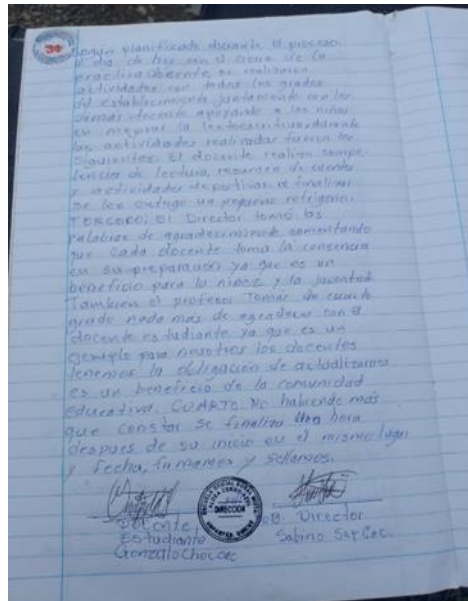 34
Según planificado durante el proceso.
el día de hoy con el cierre de la
práctica docente se realizaron
actividades con todos los grados
del establecimiento juntamente con los
demás docente apoyando a los niños
en mejorar la lectoescritura, durante
las actividades realizadas fueron los
siguientes. El docente realizo compe
tencia de lectura, resumen de cuento
y actividades deportivas, al finalizar
se les entrego un pequeño refrigerio.
TERCERO: El Director tomó las
palabras de agradecimiento comentando
que cada docente toma la conciencia
en su preparación ya que es un
beneficio para la niñez y la juventud
También el profesor Tomás de cuarto
grado nada más de agradecer con el
docente estudiante ya que es un
ejemplo para nosotros los docentes
tenemos la obligación de actualizarnos
es un beneficio de la comunidad
Educativa. CUARTO: No habiendo más
que constar se finaliza una hora
despues de su inicio en el mismo lugar
y fecha, firmamos y sellamos.
ESCUELA OFICIAL RURAL MIXTA
DIRECCION
Docente
Estudiante
Gonzalo Choc
Director
Sabino